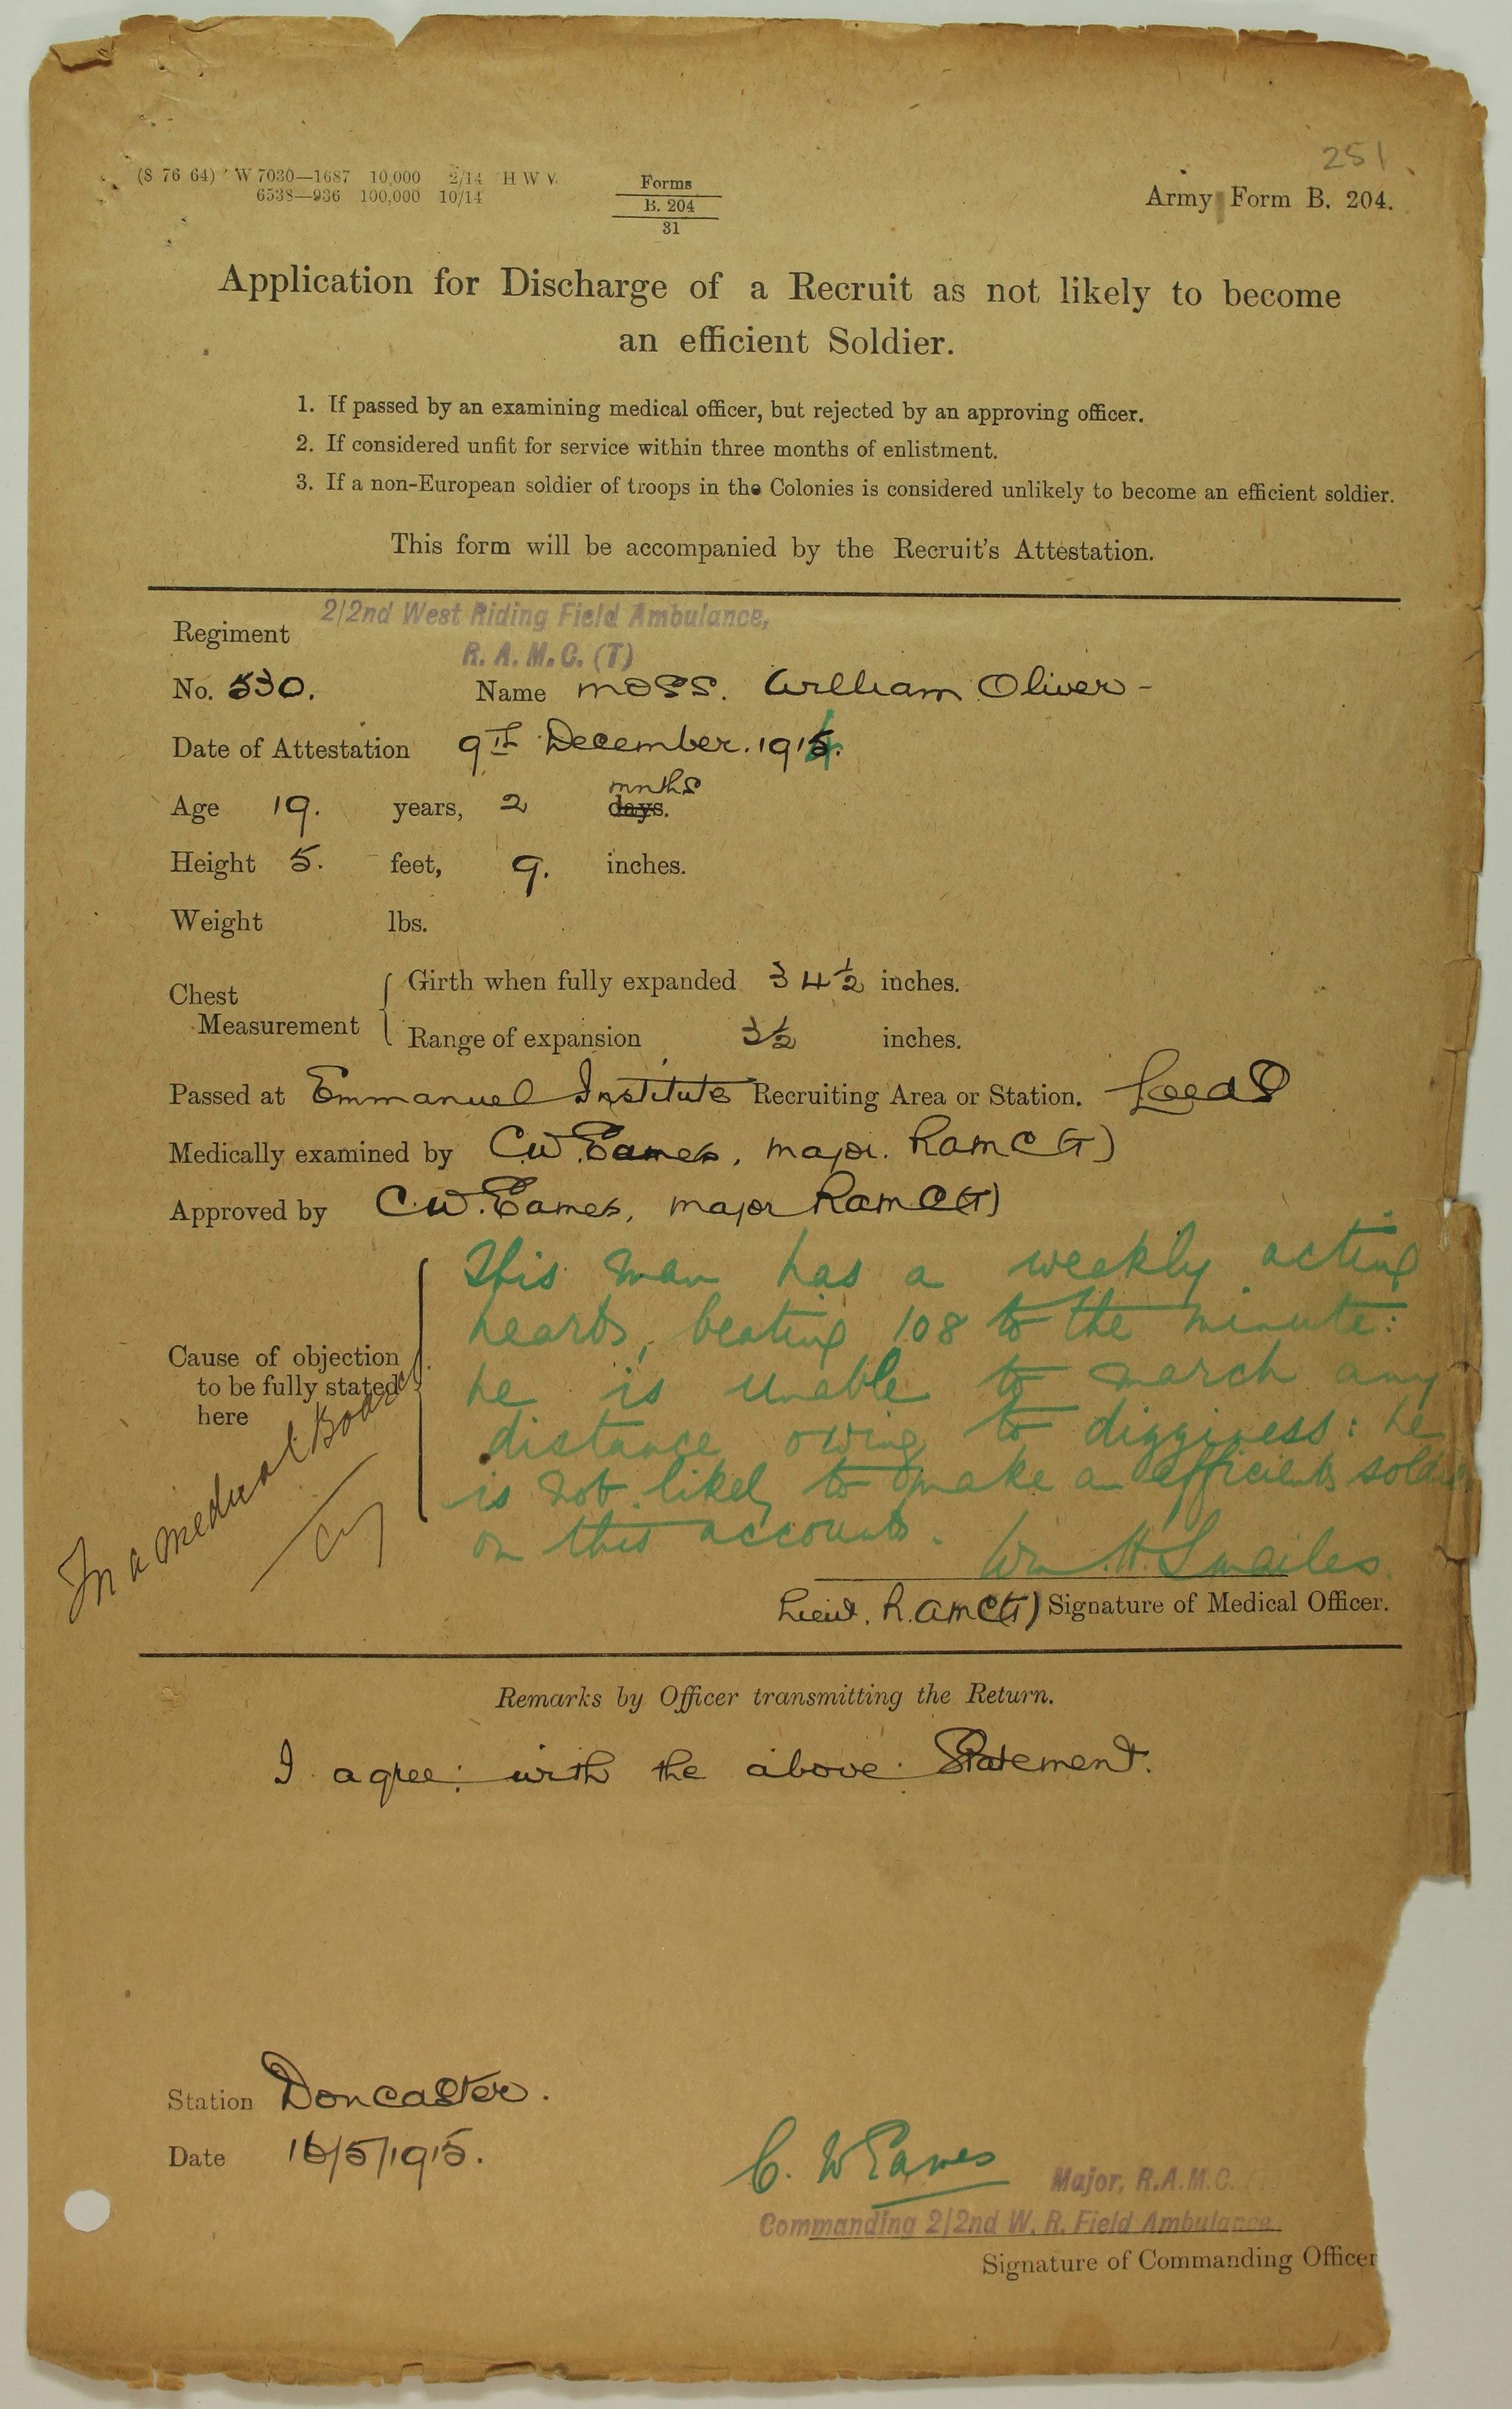 251
(8 76 64) W 7030—1687 10,000 2/14 H W V.
6538—936 100,000 10/14
Forms
B. 204
31
Army Form B. 204.
Application for Discharge of a Recruit as not likely to become
an efficient Soldier.
1. If passed by an examining medical officer, but rejected by an approving officer.
2. If considered unfit for service within three months of enlistment.
3. If a non-European soldier of troops in the Colonies is considered unlikely to become an efficient soldier.
This form will be accompanied by the Recruit's Attestation.
2/2nd West Riding Field Ambulance,
Regiment
R. A. M. C. (T)
No. 530. Name Moss. William Oliver -
Date of Attestation 9th December. 1914.
mnths
Age 19. years, 2 days.
Height 5. feet, 9. inches.
Weight lbs.
Chest Measurement
Girth when fully expanded 34½ inches.
Range of expansion 3½ inches.
Passed at Emmanuel Institute Recruiting Area or Station. Leeds
Medically examined by C.W. Eames, Major. RAMC (T)
Approved by C.W. Eames, Major RAMC (T)
Cause of objection
to be fully stated
here
This man has a weakly acting
heart, beating 108 to the minute:
he is unable to march any
distance owing to dizziness: he
is not likely to make an efficient soldier
on this account.
Wm. H. Smailes.
In a medical Board
Lieut. R.AMC (T) Signature of Medical Officer.
Remarks by Officer transmitting the Return.
I agree with the above Statement.
Station Doncaster.
Date 16/5/1915.
C. W Eames
Major, R.A.M.C.
Commanding 2/2nd W. R. Field Ambulance
Signature of Commanding Officer